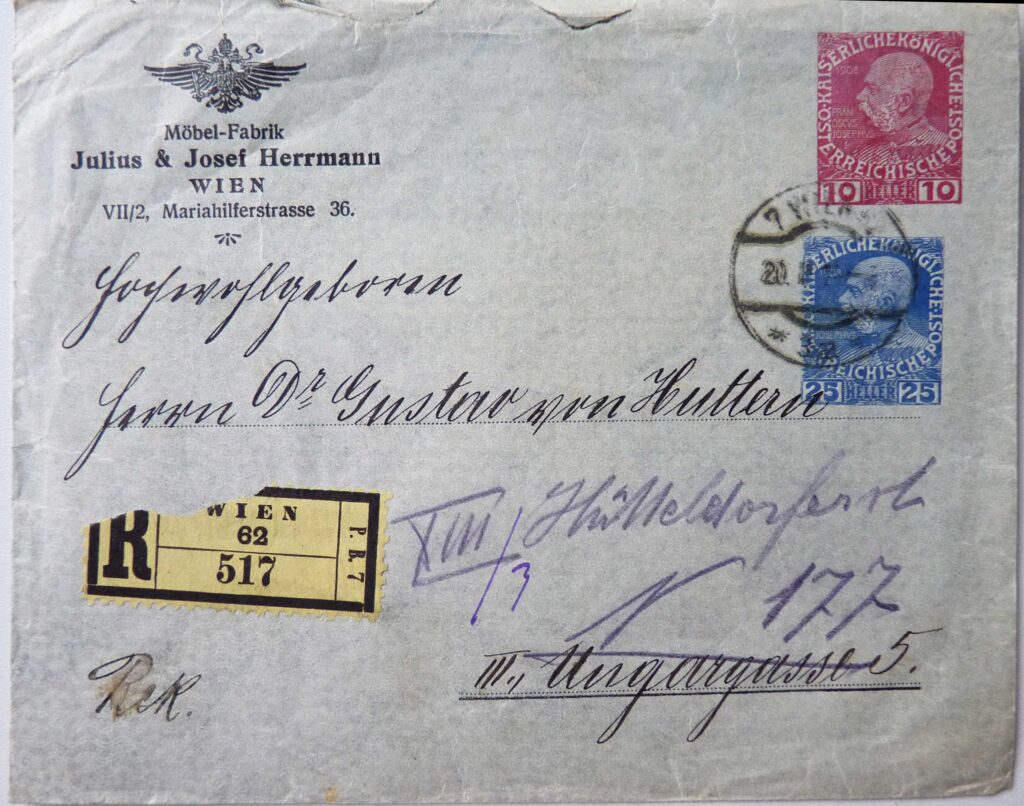 Möbel-Fabrik
Julius & Josef Herrmann
WIEN
VII/2, Mariahilferstrasse 36.
OST: KAISERLICHEKÖNIGLICHE POST
ERREICHISCHE
1908
FRAN
CISCVS
JOSEPHVS
10 HELLER 10
7 WIEN
20
KAISERLICHEKÖNIGLICHE POST
REICHISCHE
JOSEPHVS
25 HELLER 25
Hochwohlgeboren
Herrn Dr Gustav von Huttern
R
WIEN
62
517
P. B. 7
XIII/3
Hütteldorferst
177
III., Ungargasse 5.
Rek.